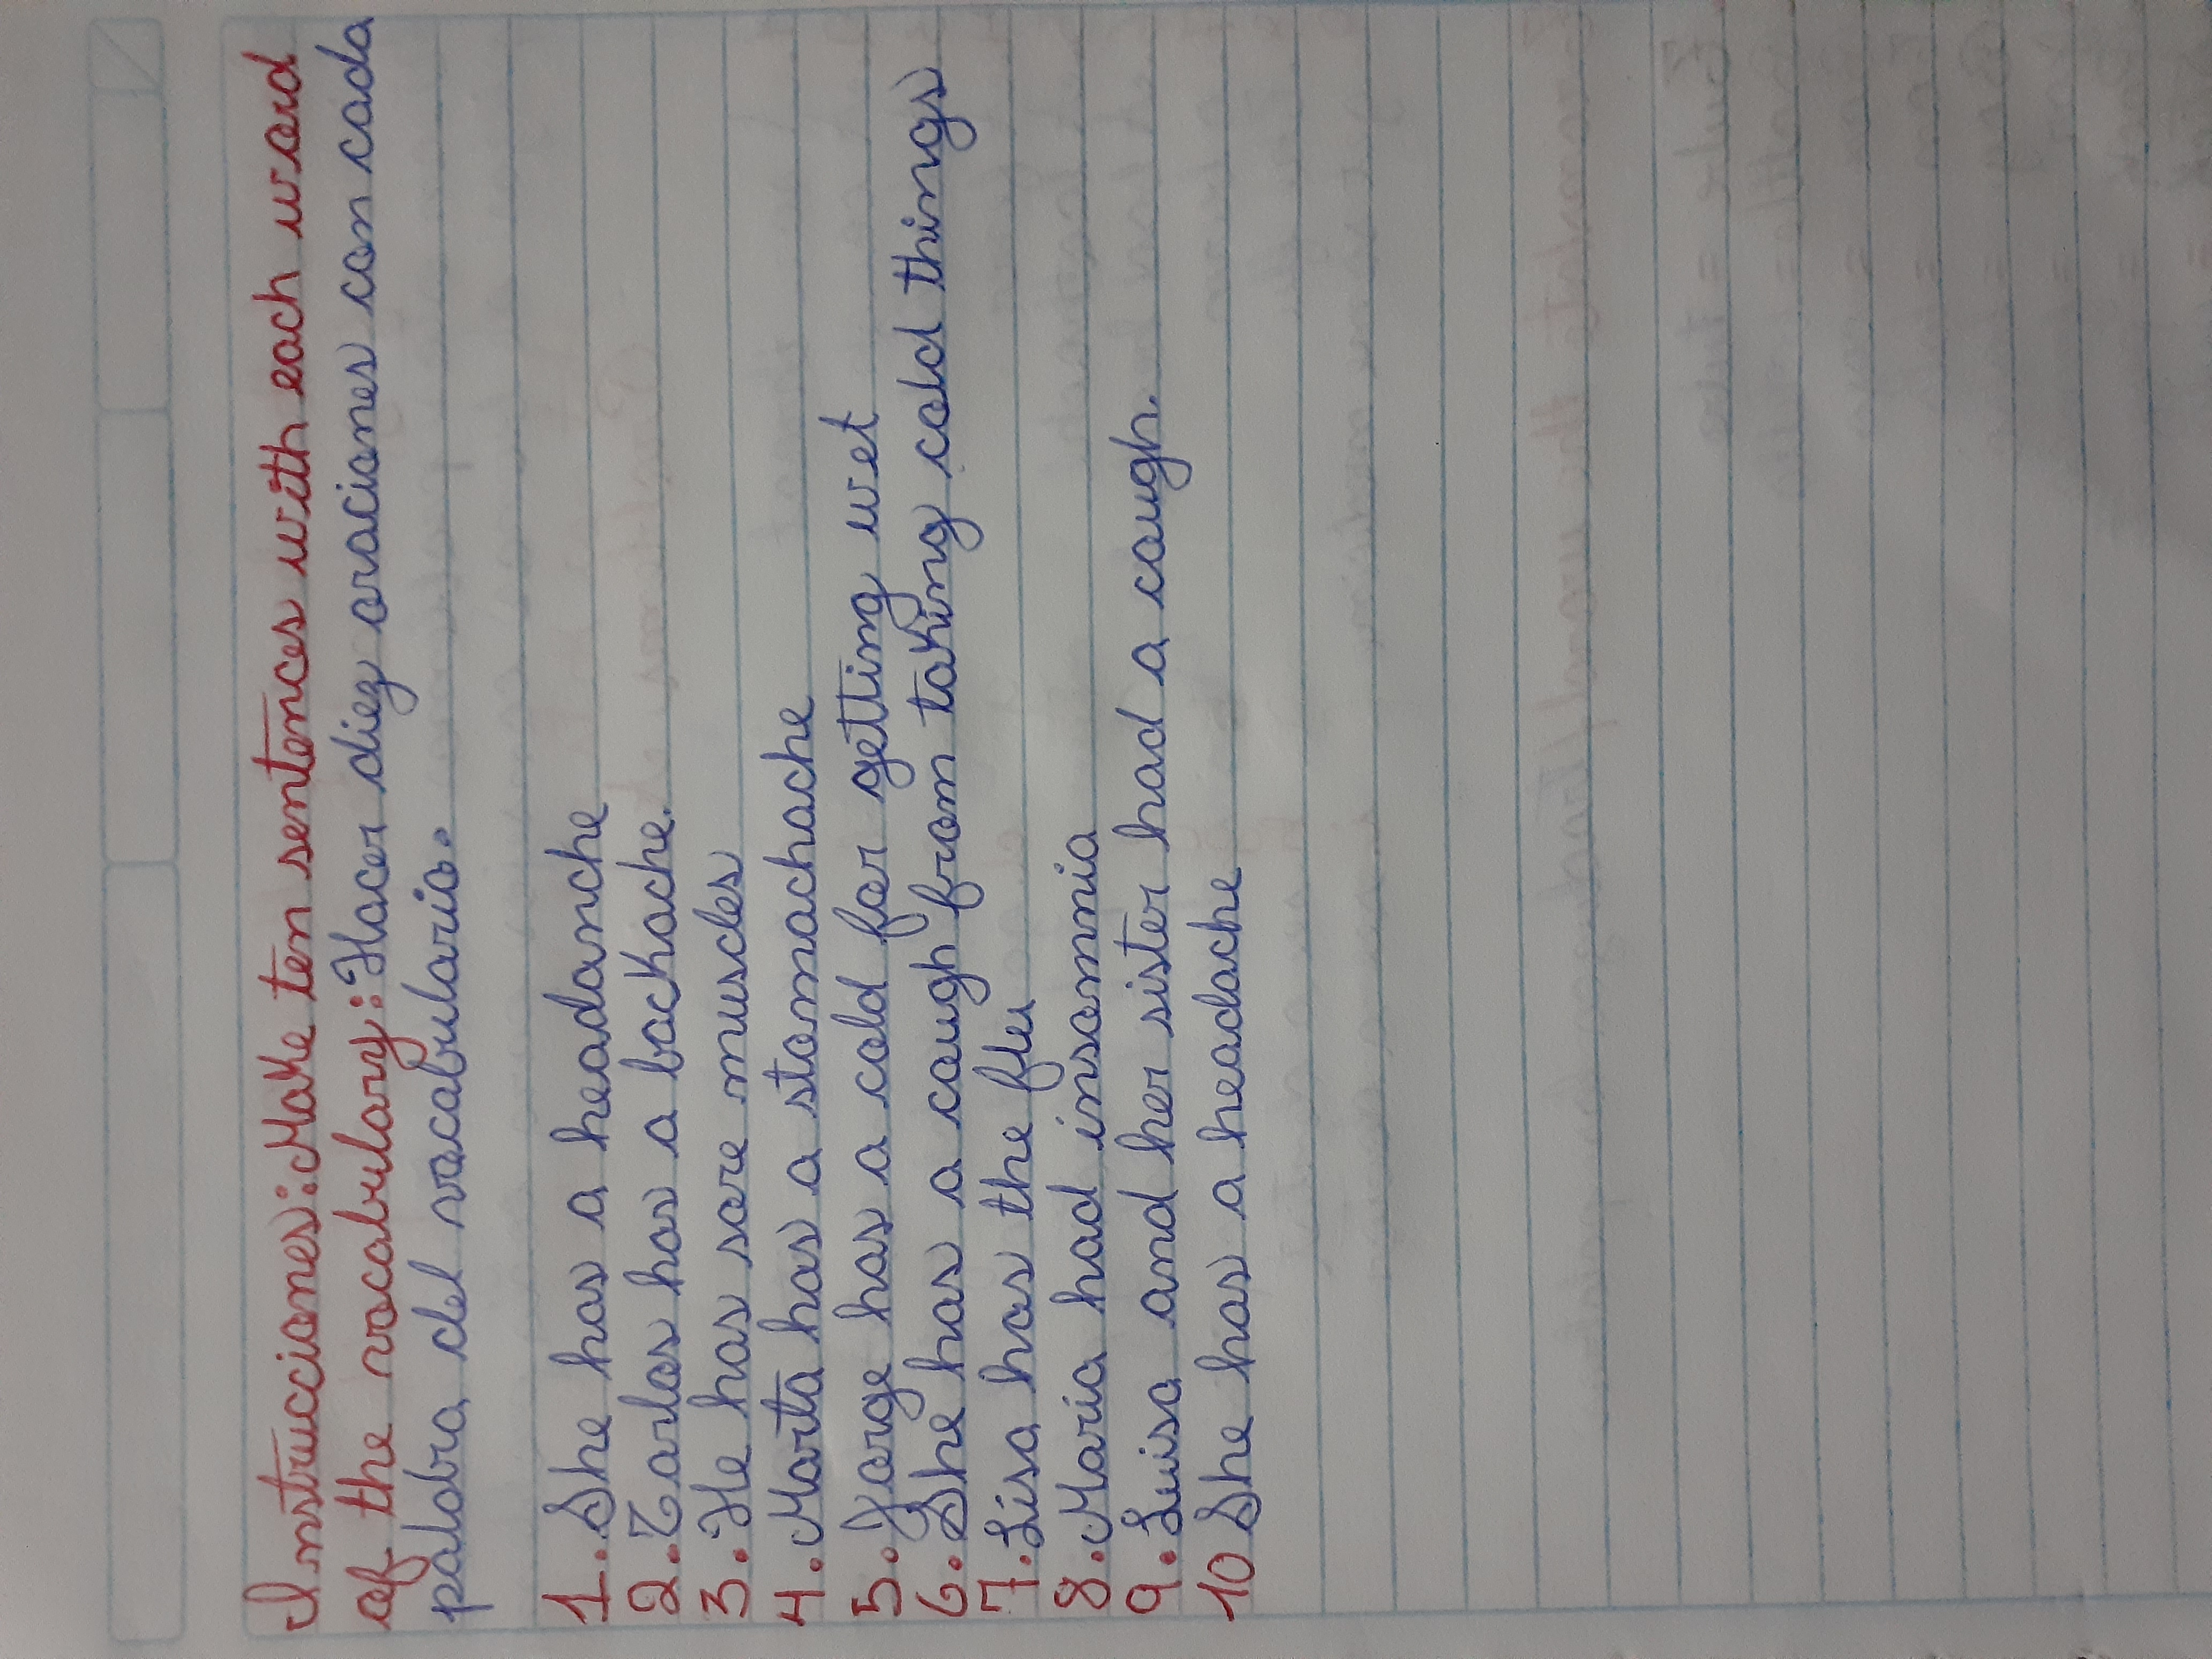 Instrucciones: Make ten sentences with each word
of the vocabulary: Hacer diez oraciones con cada
palabra del vocabulario.
1. She has a headanche
2. Carlos has a backache.
3. He has sore muscles
4. Marta has a stomachache
5. Jorge has a cold for getting wet
6. She has a cough from taking cold things
7. Lisa has the flu
8. Maria had insomnia
9. Luisa and her sister had a cough.
10 She has a headache